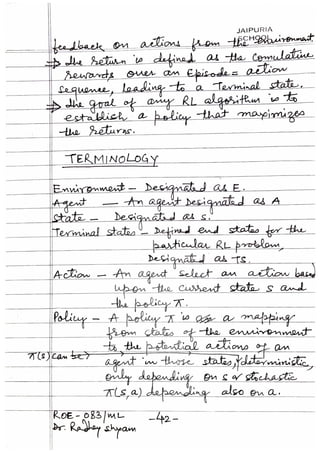 JAIPURIA
SCHOOL
feedback on actions from the environment
⇒ The return is defined as the comulative
rewards over an Episode = action
sequence, leading to a Terminal state.
⇒ The goal of any RL algorithm is to
establish a policy that maximizes
the returns.
TERMINOLOGY
Environment - Designated as E.
Agent — An agent Designated as A
State - Designated as s.
Terminal states - Defined end states for the
particular RL problem,
Designated as TS.
Action - An agent select an action based
upon the current state s and
the policy π.
Policy - A policy π is a mapping
from states of the environment
to the potential actions of an
π(s) can be agent in those states, deterministic,
only depending on s or stochastic
π(s,a) depending also on a.
ROE-083/ML -42-
Dr. Radhey Shyam